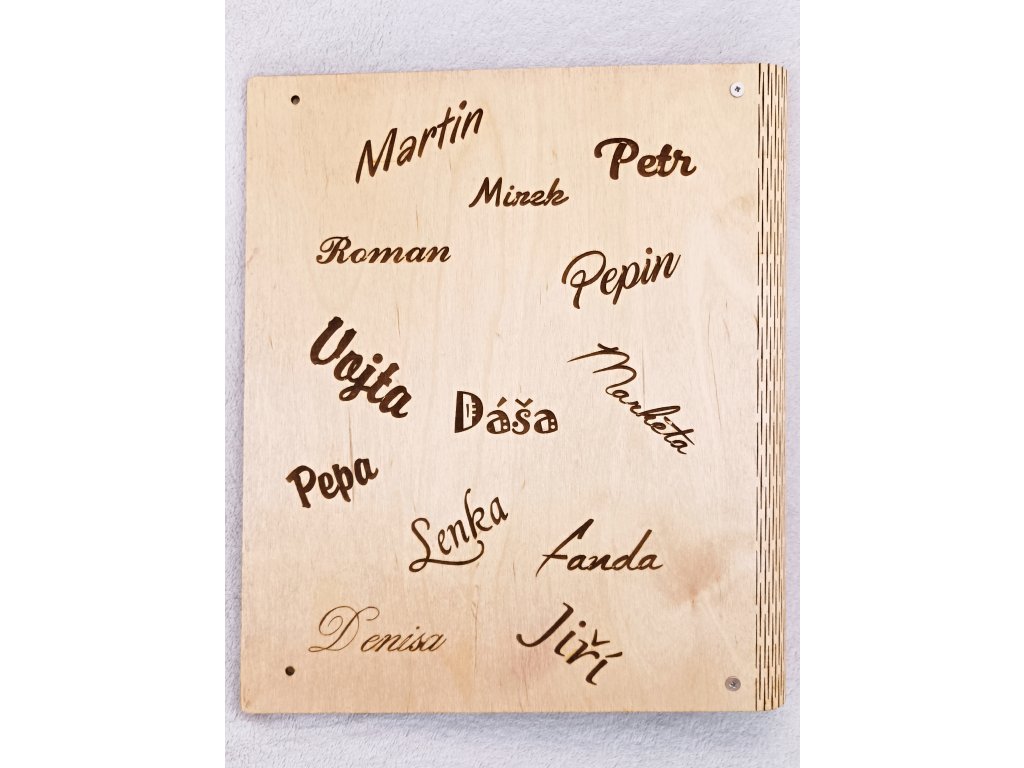 Martin
Petr
Mirek
Roman
Pepin
Vojta
Dáša
Markéta
Pepa
Lenka
Fanda
Denisa
Jiří